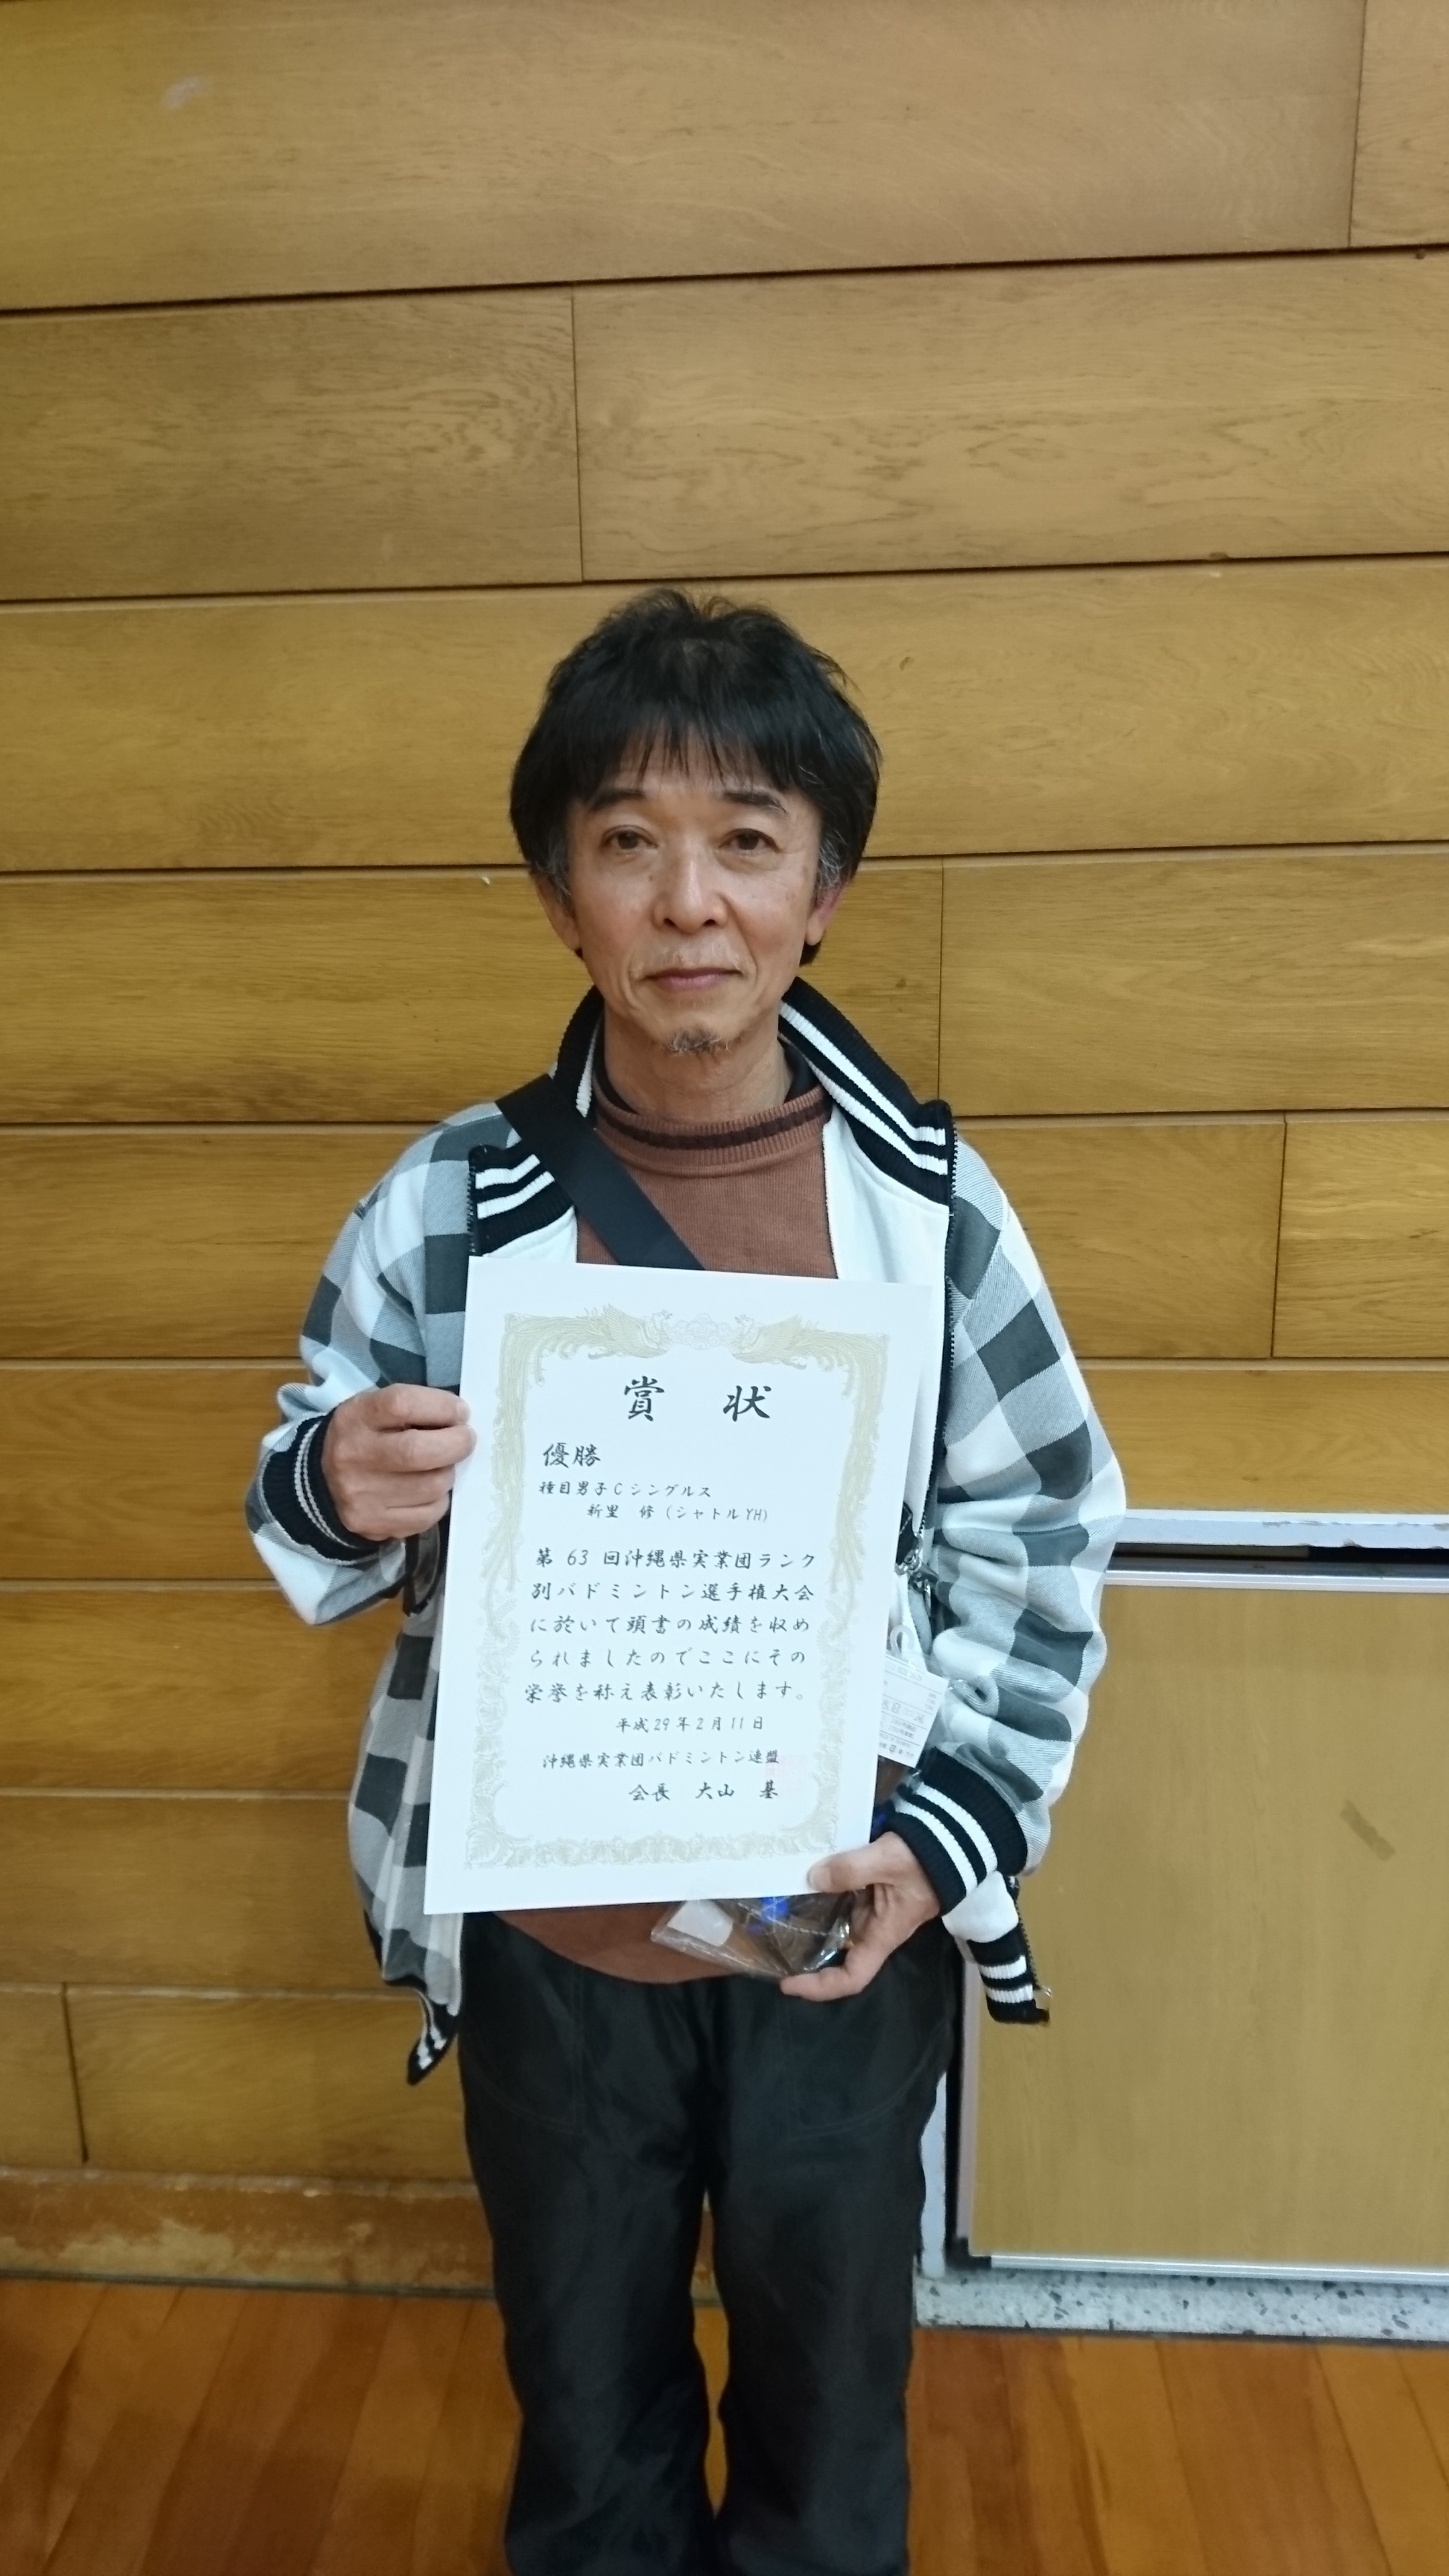 賞 状
優勝
種目男子Cシングルス
新里 修(シャトルYH)
第63回沖縄県実業団ランク
別バドミントン選手権大会
に於いて頭書の成績を収め
られましたのでここにその
栄誉を称え表彰いたします。
平成29年2月11日
沖縄県実業団バドミントン連盟
会長 大山 基